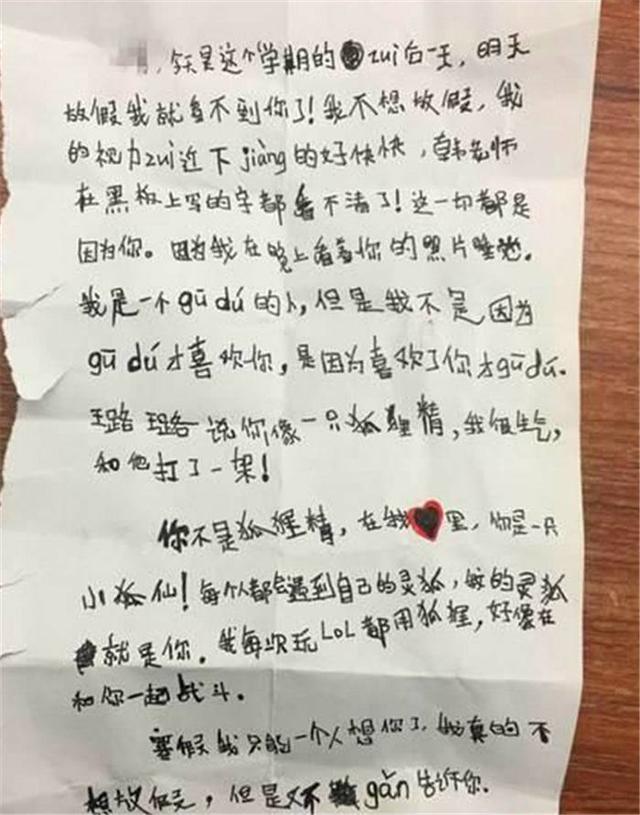 ，今天是这个学期的zui后一天，明天
放假我就看不到你了！我不想放假，我
的视力zui近下jiàng的好快快，韩老师
在黑板上写的字都看不清了！这一切都是
因为你。因为我在晚上看着你的照片睡觉。
我是一个gū dú的人，但是我不是因为
gū dú才喜欢你，是因为喜欢了你才gū dú.
王璐璐说你像一只狐狸精，我很生气，
和他打了一架！
你不是狐狸精，在我❤里，你是一只
小狐仙！每个人都会遇到自己的灵狐，我的灵狐
就是你．我每次玩LOL都用狐狸，好像在
和你一起战斗．
寒假我只能一个人想你了，我真的不
想放假，但是又不gǎn告诉你.